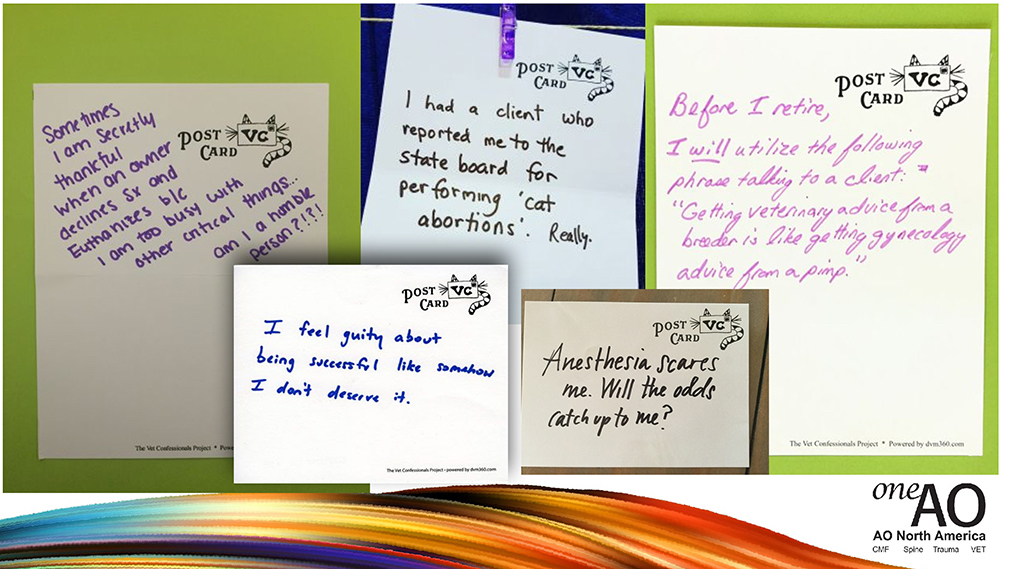 Sometimes
I am secretly
thankful
when an owner
declines Sx and
Euthanizes b/c
I am too busy with
other critical things...
am I a horrible
person?!?!
POST
CARD
VC
The Vet Confessionals Project * Pow
POST
CARD
VC
I had a client who
reported me to the
state board for
performing 'cat
abortions'. Really.
POST
CARD
VC
Before I retire,
I will utilize the following
phrase talking to a client:
"Getting veterinary advice from a
breeder is like getting gynecology
advice from a pimp."
The Vet Confessionals Project * Powered by dvm360.com
POST
CARD
VC
I feel guity about
being successful like somehow
I don't deserve it.
The Vet Confessionals Project • powered by dvm360.com
POST
CARD
VC
Anesthesia scares
me. Will the odds
catch up to me?
one AO
AO North America
CMF Spine Trauma VET